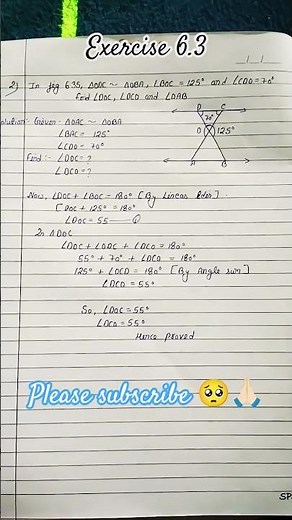 Exercise 6.3
2) In fig 6.35, ΔODC ~ ΔOBA, ∠BOC = 125° and ∠CDO = 70°
find ∠DOC, ∠DCO and ∠OAB
D C
70°
O 125°
A B
olution:- Given:- ΔOAC ~ ΔOBA
∠BAC = 125°
∠CDO = 70°
Find:- ∠DOC = ?
∠DCO = ?
Now, ∠DOC + ∠BOC = 180° [By Linear
∠DOC + 125° = 180°
∠DOC = 55 ①
In ΔDOC
∠DOC + ∠ODC + ∠DCO = 180°
55° + 70° + ∠DCO = 180°
125° + ∠OCD = 180° [By Angle sum]
∠DCO = 55°
So, ∠DOC = 55°
∠DCO = 55°
Hence proved
Please subscribe 🥺🙏🏻
SP